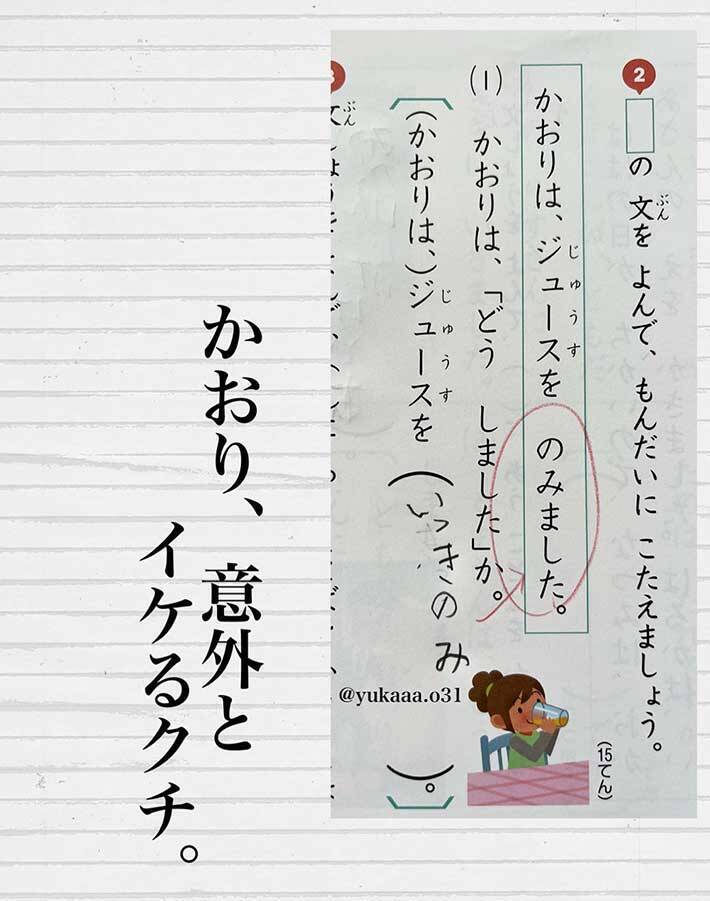 2
□の 文を よんで、もんだいに こたえましょう。
ぶん
(15てん)
かおりは、ジュースを のみました。
じゅうす
(1) かおりは、「どう しました」か。
(かおりは、)ジュースを (いっきのみ)。
じゅうす
ぶん
@yukaaa.o31
かおり、意外と
イケるクチ。